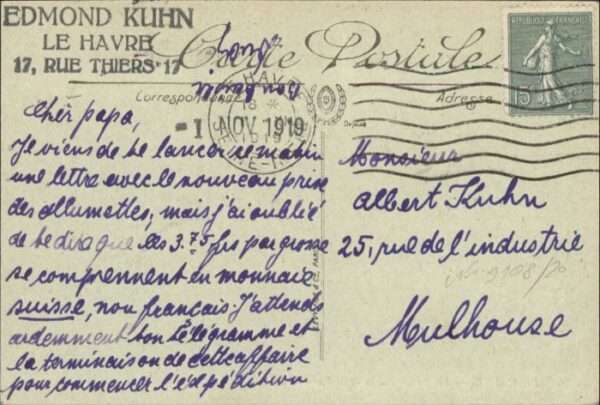 EDMOND KUHN
LE HAVRE
17, RUE THIERS 17
Carte Postale
RÉPUBLIQUE FRANÇAISE
15
Correspondance
Adresse
-1 NOV 1919
Cher papa,
Je viens de te lancer ce matin
une lettre avec le nouveau prix
des allumettes, mais j'ai oublié
de te dire que les 3.75 frs par grosse
se comprennent en monnaie
suisse, non français. J'attends
ardemment ton télégramme et
la terminaison de cette affaire
pour commencer l'expédition
Monsieur
Albert Kuhn
25, rue de l'industrie
Mulhouse